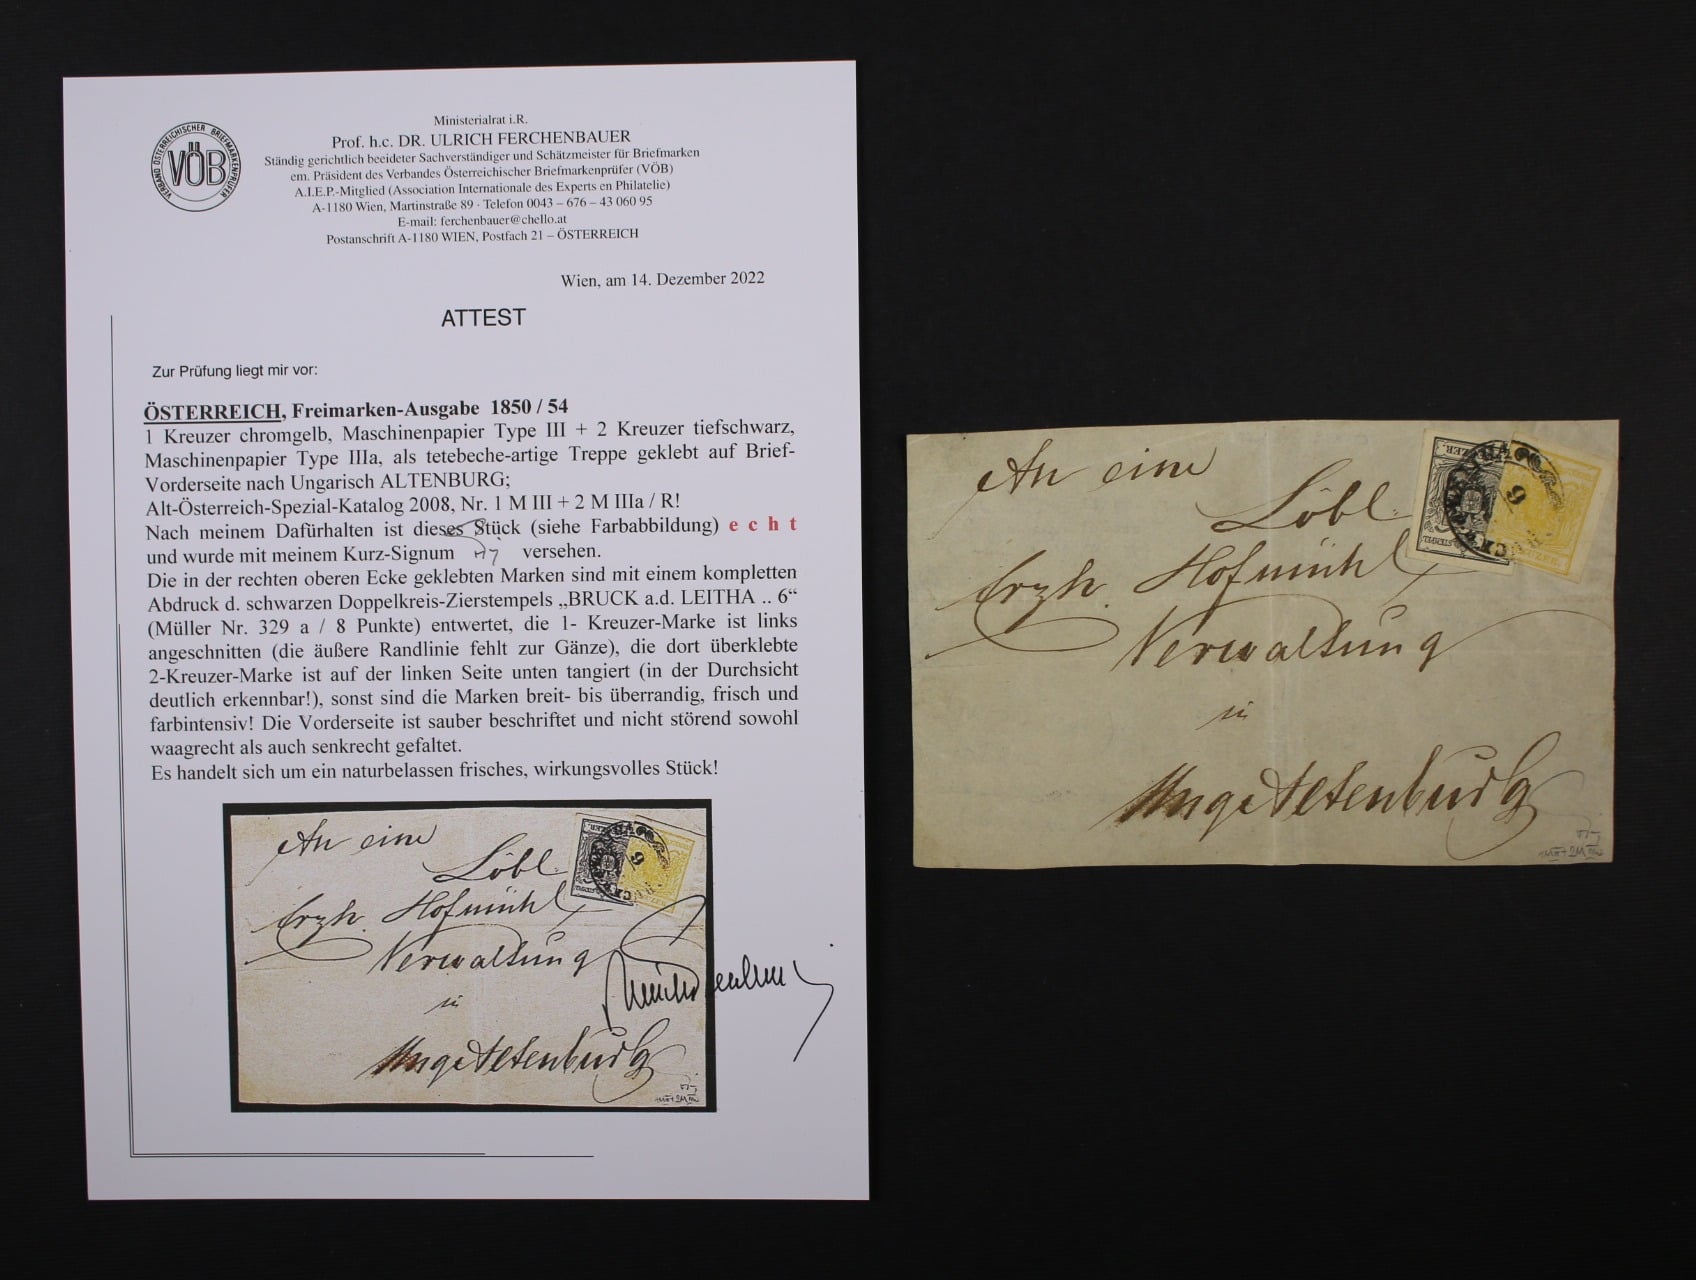 VERBAND ÖSTERREICHISCHER BRIEFMARKENPRÜFER
VÖB
Ministerialrat i.R.
Prof. h.c. DR. ULRICH FERCHENBAUER
Ständig gerichtlich beeideter Sachverständiger und Schätzmeister für Briefmarken
em. Präsident des Verbandes Österreichischer Briefmarkenprüfer (VÖB)
A.I.E.P.-Mitglied (Association Internationale des Experts en Philatelie)
A-1180 Wien, Martinstraße 89 · Telefon 0043 – 676 – 43 060 95
E-mail: ferchenbauer@chello.at
Postanschrift A-1180 WIEN, Postfach 21 – ÖSTERREICH
Wien, am 14. Dezember 2022
ATTEST
Zur Prüfung liegt mir vor:
ÖSTERREICH, Freimarken-Ausgabe 1850 / 54
1 Kreuzer chromgelb, Maschinenpapier Type III + 2 Kreuzer tiefschwarz,
Maschinenpapier Type IIIa, als tetebeche-artige Treppe geklebt auf Brief-
Vorderseite nach Ungarisch ALTENBURG;
Alt-Österreich-Spezial-Katalog 2008, Nr. 1 M III + 2 M IIIa / R!
Nach meinem Dafürhalten ist dieses Stück (siehe Farbabbildung) e c h t
und wurde mit meinem Kurz-Signum versehen.
Die in der rechten oberen Ecke geklebten Marken sind mit einem kompletten
Abdruck d. schwarzen Doppelkreis-Zierstempels „BRUCK a.d. LEITHA .. 6“
(Müller Nr. 329 a / 8 Punkte) entwertet, die 1- Kreuzer-Marke ist links
angeschnitten (die äußere Randlinie fehlt zur Gänze), die dort überklebte
2-Kreuzer-Marke ist auf der linken Seite unten tangiert (in der Durchsicht
deutlich erkennbar!), sonst sind die Marken breit- bis überrandig, frisch und
farbintensiv! Die Vorderseite ist sauber beschriftet und nicht störend sowohl
waagrecht als auch senkrecht gefaltet.
Es handelt sich um ein naturbelassen frisches, wirkungsvolles Stück!
An eine
Löbl.
Erzh. Hofmühl
Verwaltung
in
Ung Altenburg
An eine
Löbl.
Erzh. Hofmühl
Verwaltung
in
Ung Altenburg